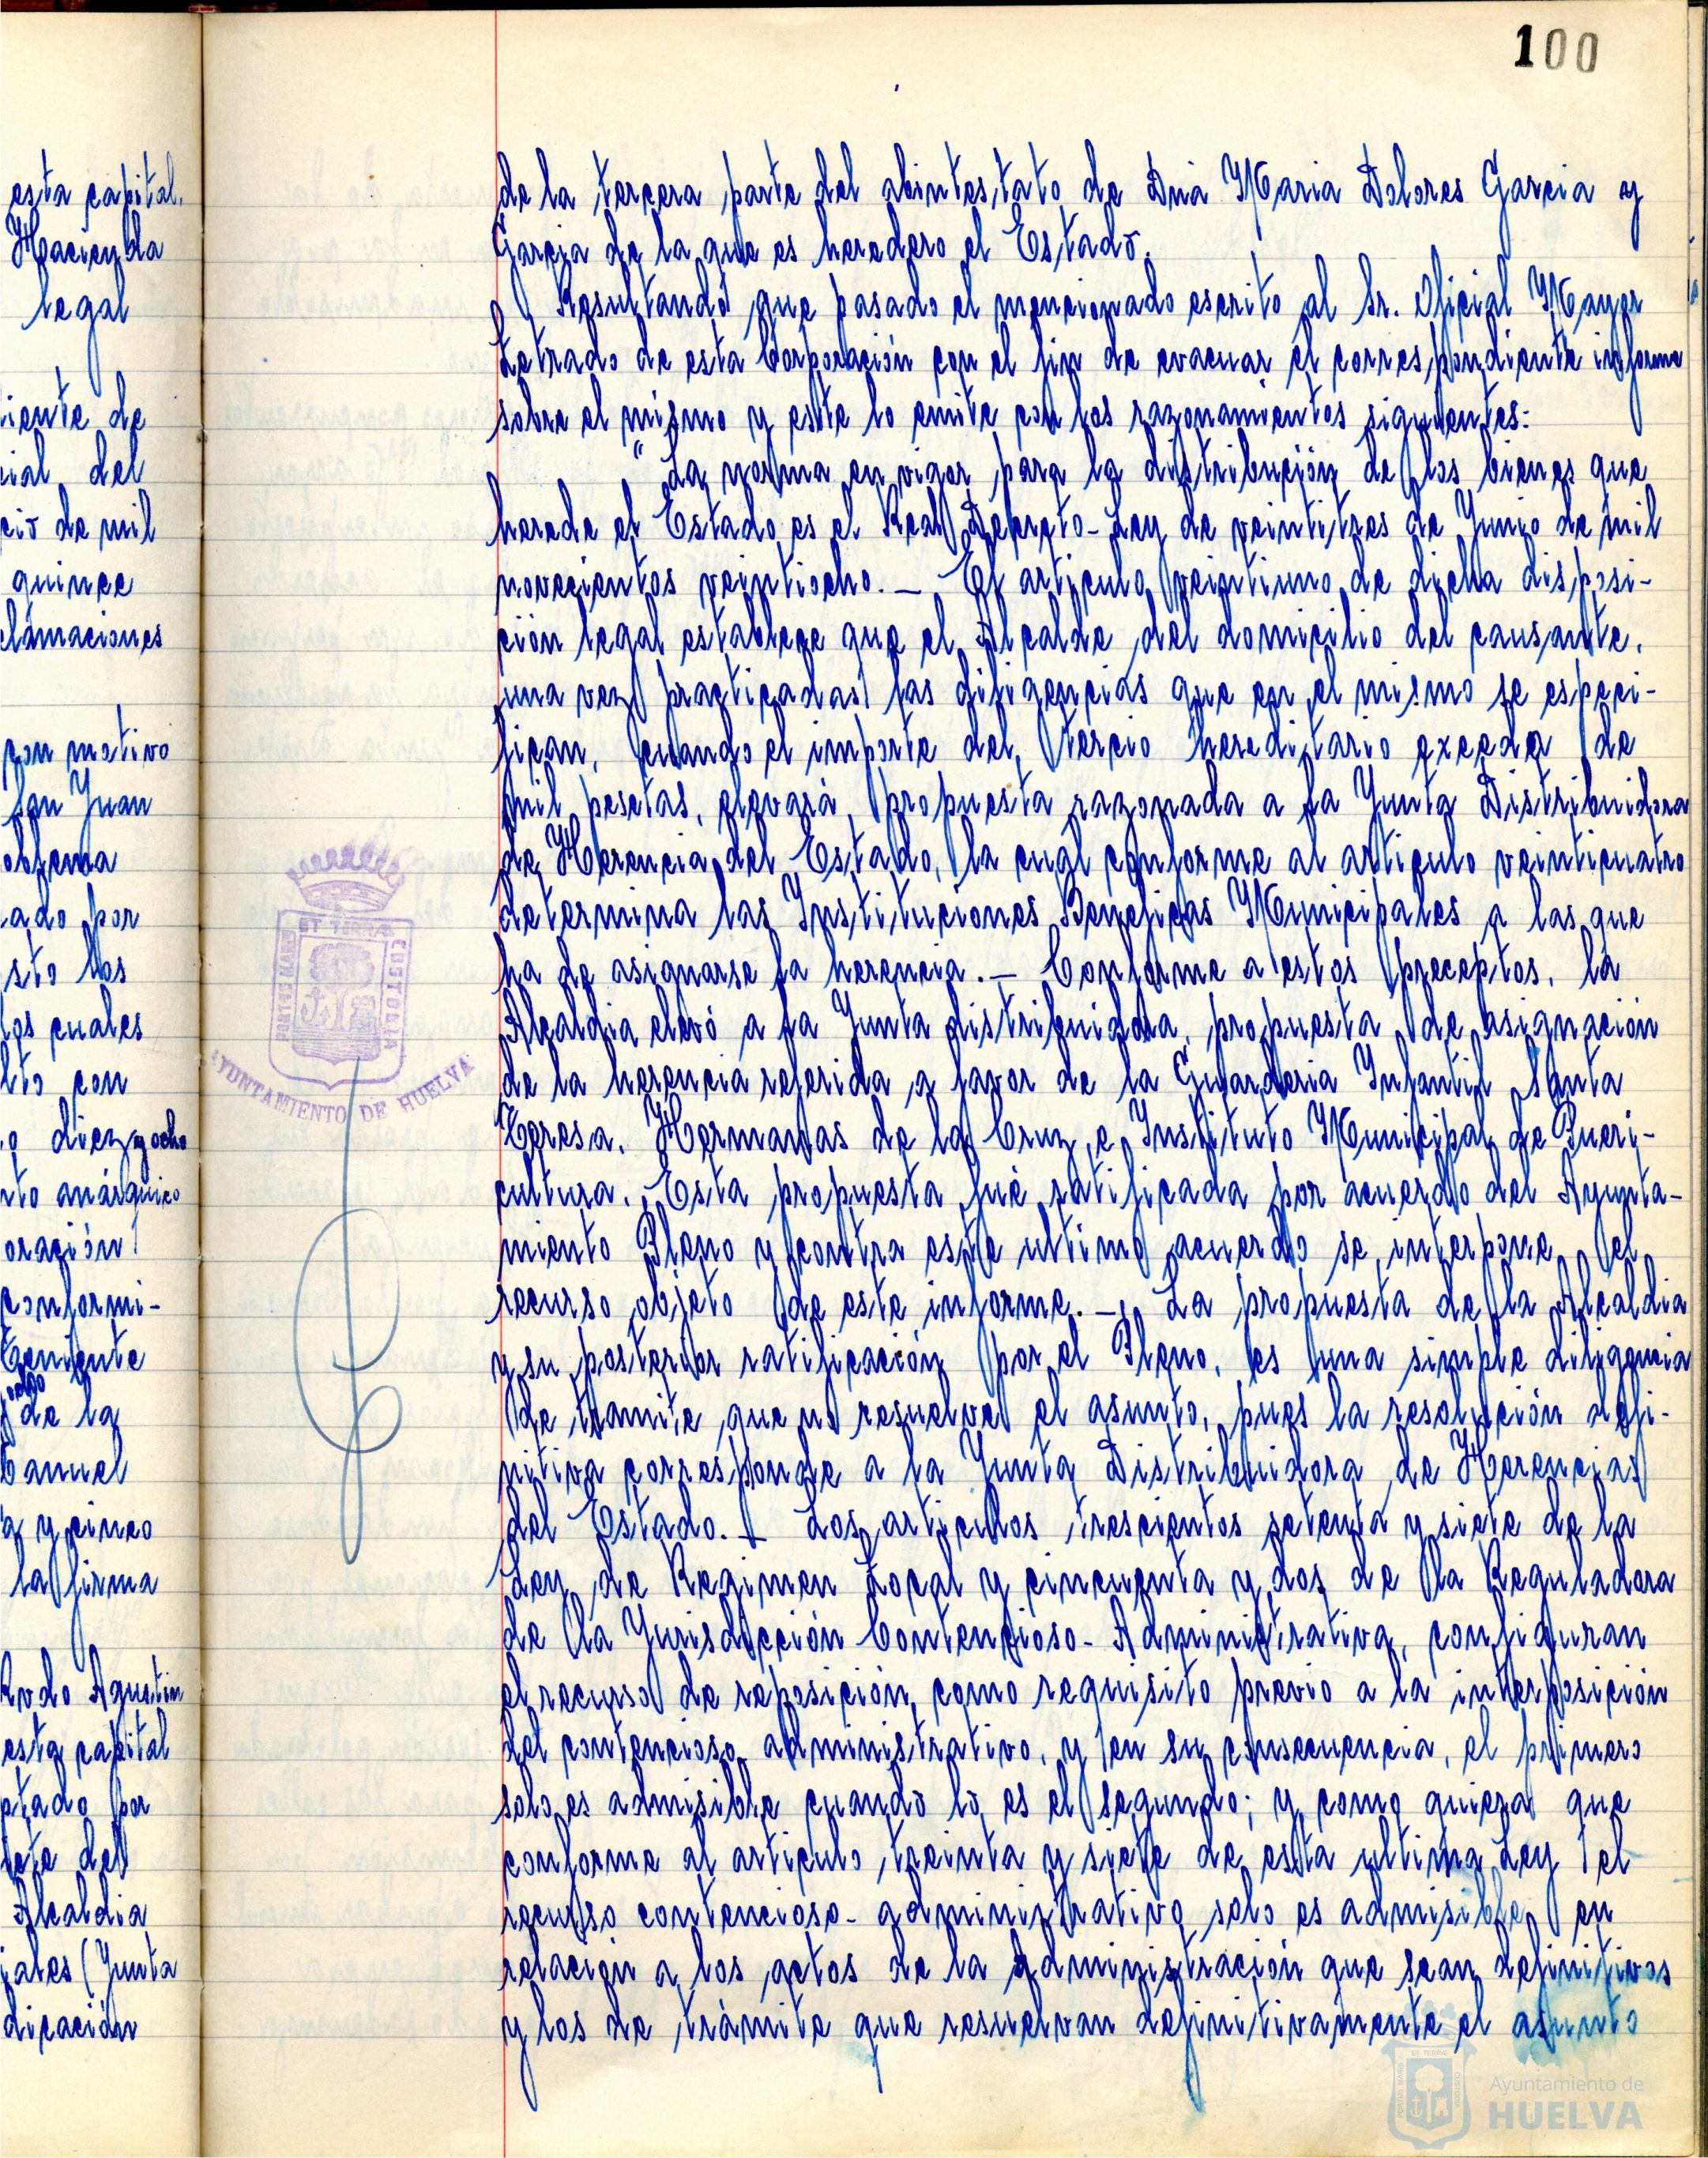 100
esta capital.
Hacienda
legal
iente de
cial del
cio de mil
quince
clamaciones
con motivo
San Juan
ado por
sto los
los cuales
lto con
o diez y ocho
nto anárquico
oración
conformi-
Teniente
de la
y cinco
la firma
Agustin
esta capital
ptado por
Alcaldia
iales (Junta
dicación
de la tercera parte del abintestato de Dña Maria Dolores Garcia y
Garcia de la que es heredero el Estado.
Resultando que pasado el mencionado escrito al Sr. Oficial Mayor
Letrado de esta Corporación con el fin de evacuar el correspondiente informe
sobre el mismo y este lo emite con los razonamientos siguientes:
"La norma en vigor para la distribución de los bienes que
herede el Estado es el Real Decreto-Ley de veintitres de Junio de mil
novecientos veintiocho.— El articulo veintiuno de dicha disposi-
ción legal establece que el Alcalde del domicilio del causante,
una vez practicadas las diligencias que en el mismo se especi-
fican, cuando el importe del Tercio hereditario exceda de
mil pesetas, elevará propuesta razonada a la Junta Distribuidora
de Herencia del Estado, la cual conforme al articulo veinticuatro
determina las Instituciones Beneficas Municipales a las que
ha de asignarse la herencia.— Conforme a estos preceptos, la
Alcaldia elevó a la Junta distribuidora, propuesta de asignación
de la herencia referida a favor de la Guarderia Infantil Santa
Teresa, Hermanas de la Cruz, e Instituto Municipal de Pueri-
cultura. Esta propuesta fué ratificada por acuerdo del Ayunta-
miento Pleno y contra este ultimo acuerdo se interpone el
recurso objeto de este informe.— La propuesta de la Alcaldia
y su posterior ratificación por el Pleno, es una simple diligencia
de tramite que no resuelve el asunto, pues la resolución defi-
nitiva corresponde a la Junta Distribuidora de Herencias
del Estado.— Los articulos trescientos setenta y siete de la
Ley de Regimen Local y cincuenta y dos de la Reguladora
de la Jurisdicción Contencioso-Administrativa, configuran
el recurso de reposición, como requisito previo a la interposición
del contencioso administrativo, y en su consecuencia, el primero
solo es admisible cuando lo es el segundo; y como quiera que
conforme al articulo treinta y siete de esta ultima Ley el
recurso contencioso-administrativo solo es admisible en
relación a los actos de la administración que sean definitivos
y los de trámite que resuelvan definitivamente el asunto
PORTUS MARIS ET TERRAE CUSTODIA
AYUNTAMIENTO DE HUELVA
Ayuntamiento de
HUELVA